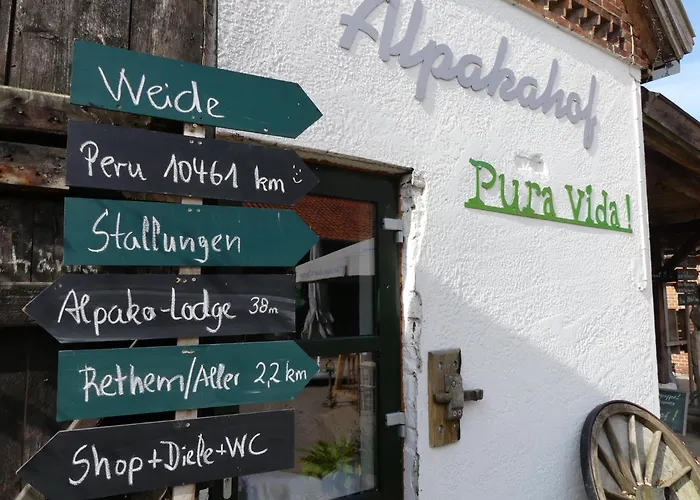 Alpakahof
Pura Vida!
Weide
Peru 10461 km
Stallungen
Alpaka-Lodge 38m
Rethem/Aller 2,2 km
Shop+Diele+WC